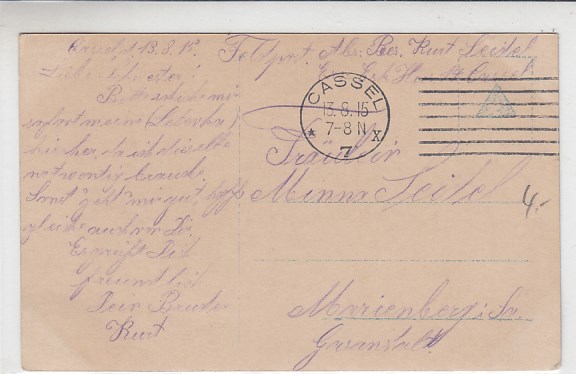 Kassel d 13.8.15.
Liebe Schwester!
Bitte schicke mir
sofort meine
hierher, da ich dieselbe
notwendig brauche.
Sonst geht mir gut, hoffe
gleiche auch von Dir.
Es grüßt Dich
freundlich
Dein Bruder
Kurt
Feldpost. Abs. Res. Kurt Seidel
CASSEL
13.8.15
7-8 N
* X
7
Fräulein
Minna Seidel
Marienberg i. Sa.
Gasanstalt.
4.-